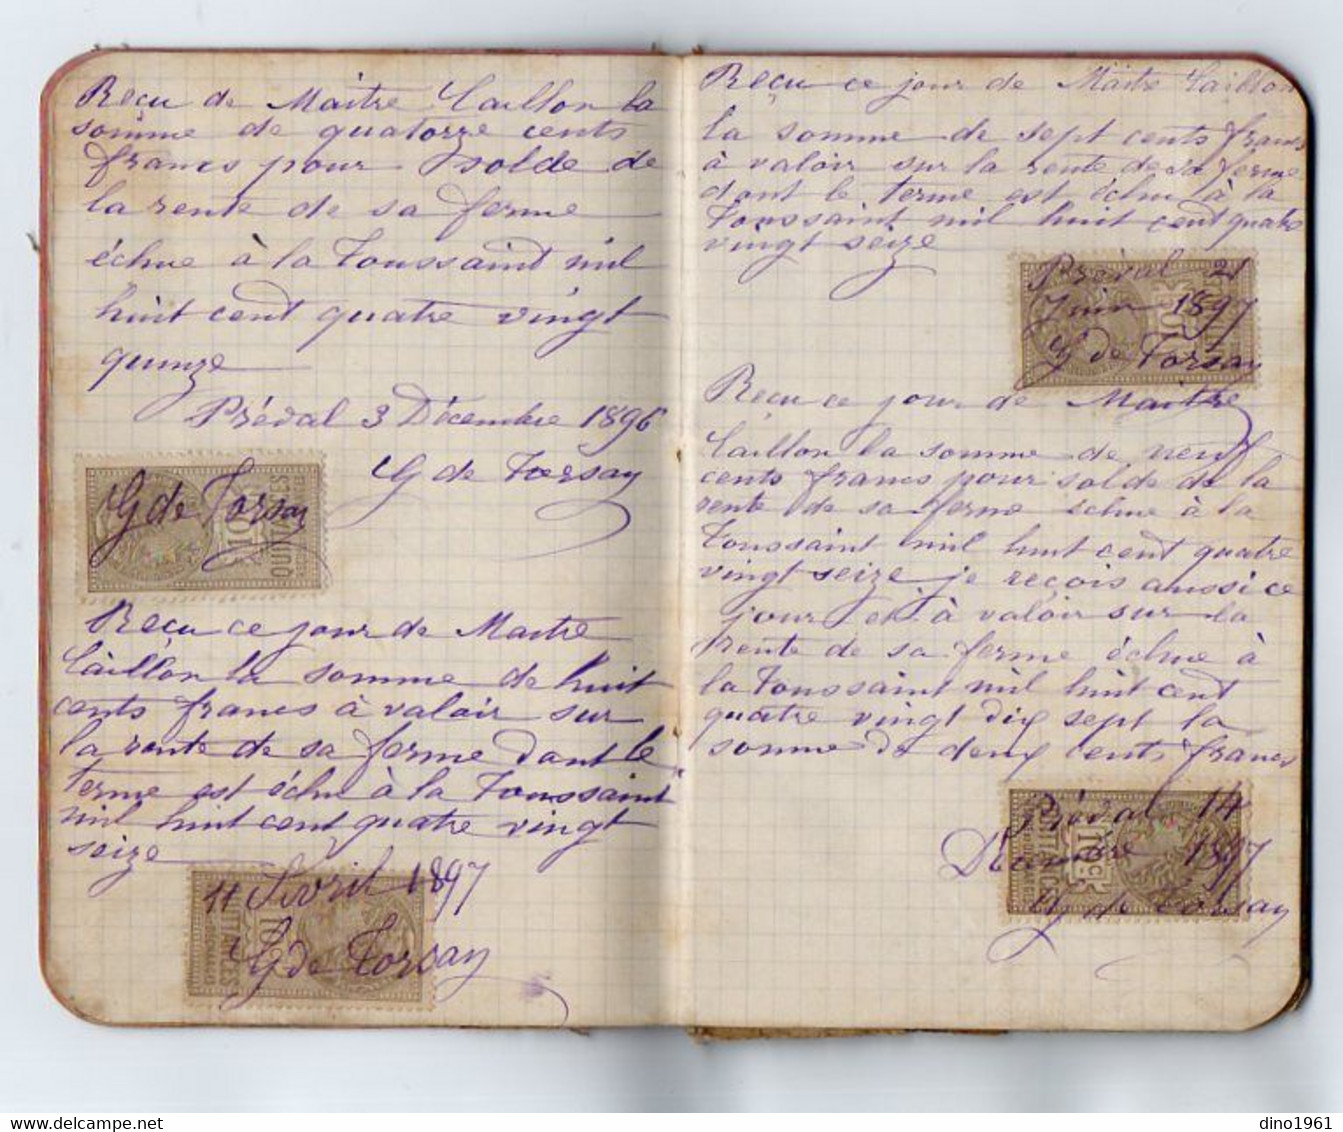 Reçu de Maitre Caillon la
somme de quatorze cents
francs pour solde de
la rente de sa ferme
échue à la Toussaint mil
huit cent quatre vingt
quinze
Préval 3 Décembre 1896
G de Torsay
G de Torsay
Reçu ce jour de Maitre
Caillon la somme de huit
cents francs à valoir sur
la rente de sa ferme dont le
terme est échu à la Toussaint
mil huit cent quatre vingt
seize
11 Avril 1897
G de Torsay
Reçu ce jour de Maitre Caillon
la somme de sept cents francs
à valoir sur la rente de sa ferme
dont le terme est échu à la
Toussaint mil huit cent quatre
vingt seize
Préval 21
Juin 1897
G de Torsay
Reçu ce jour de Maitre
Caillon la somme de neuf
cents francs pour solde de la
rente de sa ferme échue à la
Toussaint mil huit cent quatre
vingt seize je reçois aussi ce
jour et à valoir sur la
rente de sa ferme échue à
la Toussaint mil huit cent
quatre vingt dix sept la
somme de deux cents francs
Préval 14
Décembre 1897
G de Torsay
dino1961